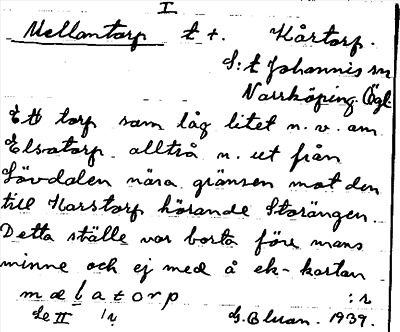 I
Mellantorp t t. Kårtorp.
S:t Johannis sn
Norrköping. Ögl.
Ett torp som låg litet n. v. om
Elsatorp alltså n. ut från
Lövdalen nära gränsen mot den
till Karstorp hörande Storängen.
Detta ställe var borta före mans
minne och ej med å ek-kartan